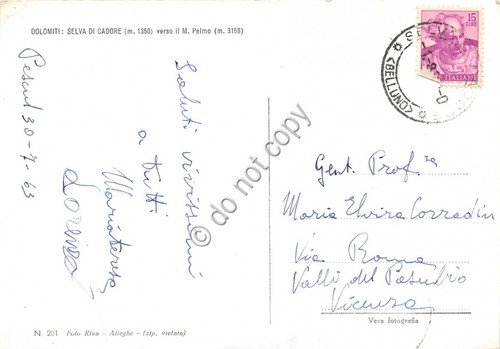 DOLOMITI: SELVA DI CADORE (m. 1350) verso il M. Pelmo (m. 3168)
Pescul 30-7-63
Saluti vivissimi
a tutti
Mariateresa
Lorenza
15
LIRE
ITALIANE
SELVA
(BELLUNO)
Gent. Prof.ssa
Maria Elvira Corradin
Via Roma
Valli del Pasubio
Vicenza
N. 201 Foto Riva - Alleghe - (rip. vietata)
Vera fotografia
do not copy